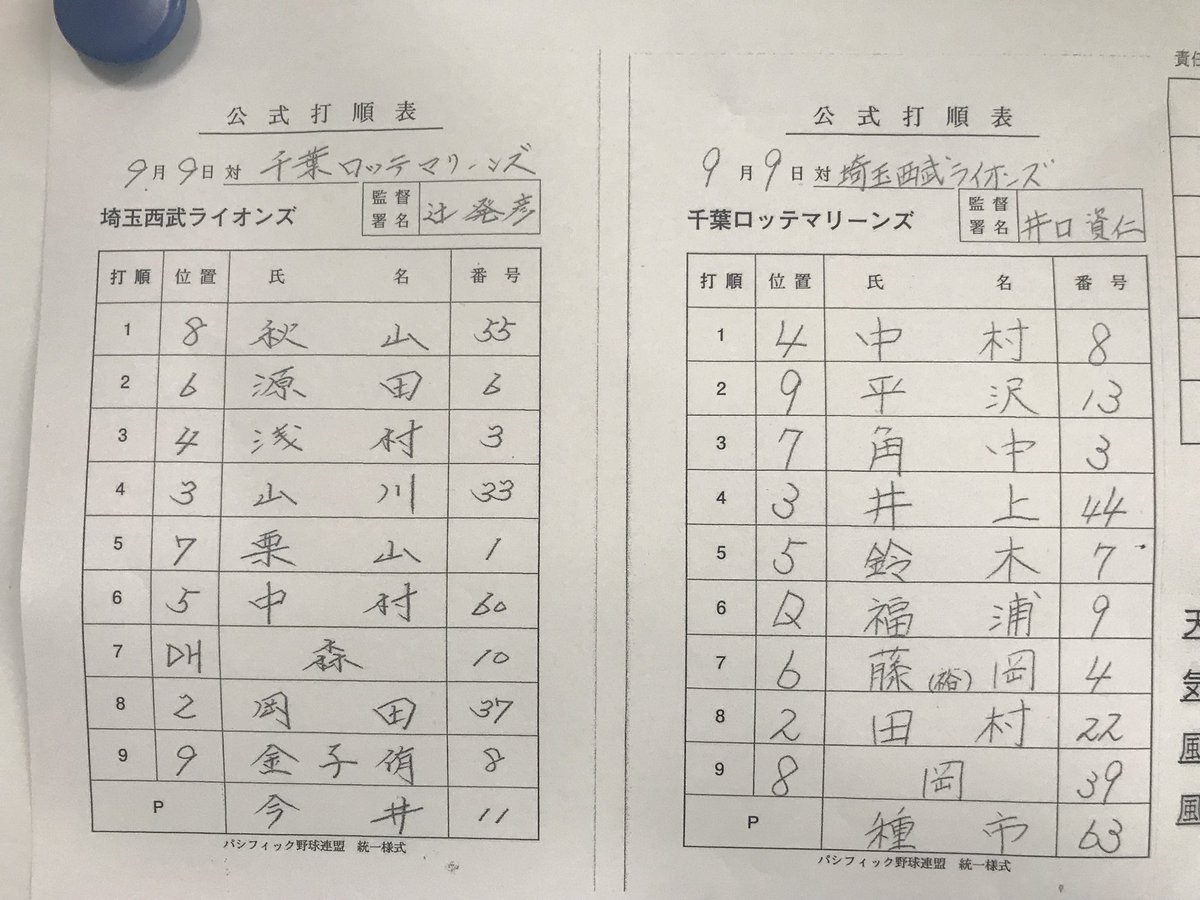 公式打順表
9月9日対 千葉ロッテマリーンズ
埼玉西武ライオンズ 監督署名 辻発彦
打順 位置 氏名 番号
1 8 秋山 55
2 6 源田 6
3 4 浅村 3
4 3 山川 33
5 7 栗山 1
6 5 中村 60
7 DH 森 10
8 2 岡田 37
9 9 金子侑 8
P 今井 11
パシフィック野球連盟 統一様式
公式打順表
9月9日対 埼玉西武ライオンズ
千葉ロッテマリーンズ 監督署名 井口資仁
打順 位置 氏名 番号
1 4 中村 8
2 9 平沢 13
3 7 角中 3
4 3 井上 44
5 5 鈴木 7
6 D 福浦 9
7 6 藤(裕)岡 4
8 2 田村 22
9 8 岡 39
P 種市 63
パシフィック野球連盟 統一様式
責任
天
気
風
風